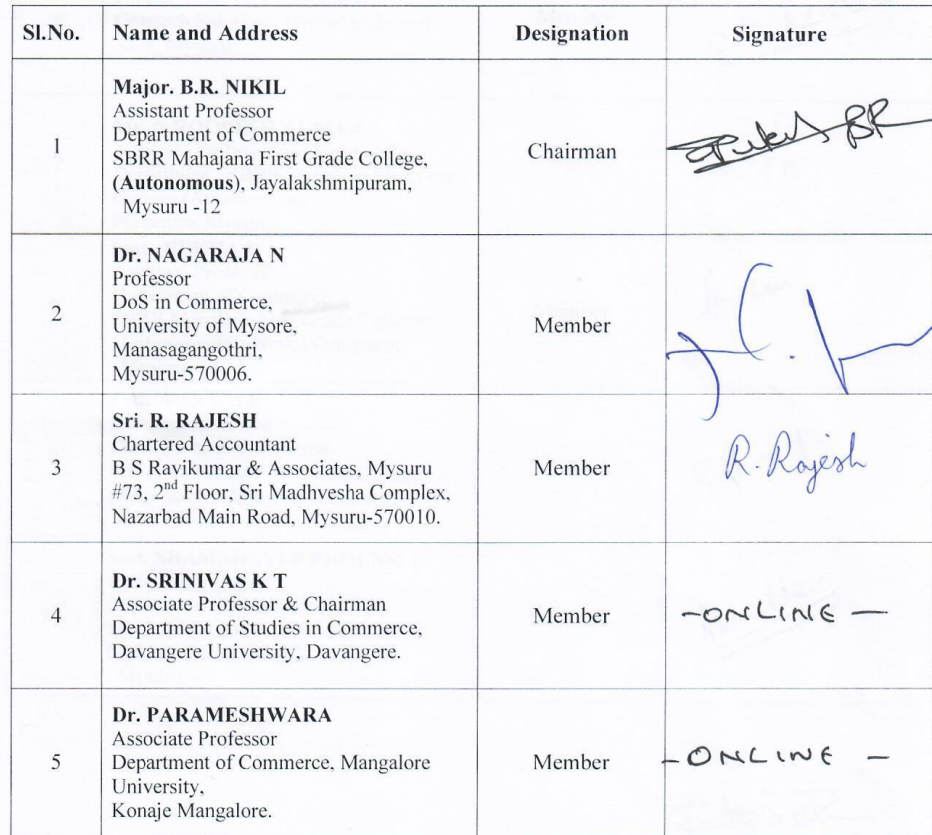 Sl.No. Name and Address Designation Signature
Major. B.R. NIKIL
Assistant Professor
Department of Commerce
1 SBRR Mahajana First Grade College, Chairman BR
(Autonomous), Jayalakshmipuram,
Mysuru -12
Dr. NAGARAJA N
Professor
DoS in Commerce,
2 University of Mysore, Member
Manasagangothri,
Mysuru-570006.
Sri. R. RAJESH
Chartered Accountant
3 B S Ravikumar & Associates, Mysuru Member R. Rajesh
#73, 2nd Floor, Sri Madhvesha Complex,
Nazarbad Main Road, Mysuru-570010.
Dr. SRINIVAS K T
Associate Professor & Chairman
4 Department of Studies in Commerce, Member -ONLINE-
Davangere University, Davangere.
Dr. PARAMESHWARA
Associate Professor
5 Department of Commerce, Mangalore Member -ONLINE-
University,
Konaje Mangalore.